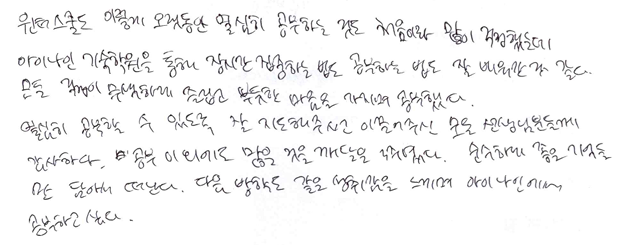 윈터스쿨도 이렇게 오랫동안 열심히 공부하는 것도 처음이라 많이 걱정했는데
아이나인 기숙학원을 통해 장시간 집중하는 법도 공부하는 법도 잘 배워간 것 같다.
모든 걱정이 무색하게 즐겁고 뿌듯한 마음을 가지며 공부했다.
열심히 공부할 수 있도록 잘 지도해주시고 이끌어주신 모든 선생님분들께
감사하다. 공부 이외에도 많은 것을 깨달은 겨울이었다. 순수하게 좋은 기억들
만 담아서 떠난다. 다음 방학도 같은 성취감을 느끼며 아이나인에서
공부하고 싶다.